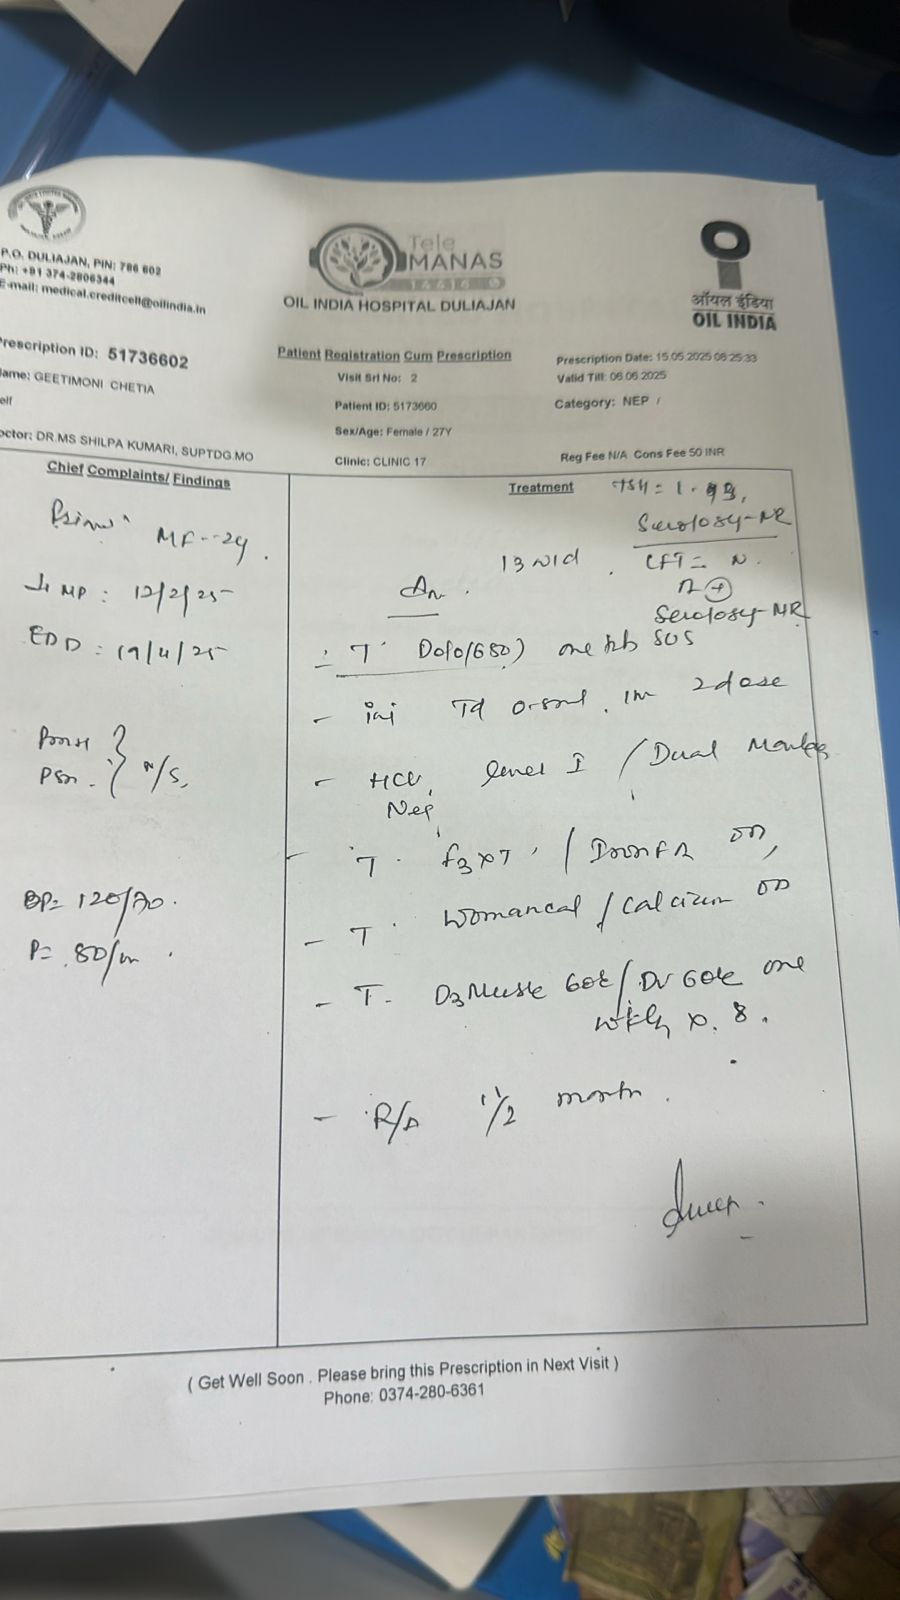 P.O. DULIAJAN, PIN: 786 602
Ph: +91 374-2806344
E-mail: medical.creditcell@oilindia.in
Tele
MANAS
14416
OIL INDIA HOSPITAL DULIAJAN
ऑयल इंडिया
OIL INDIA
Prescription ID: 51736602
Name: GEETIMONI CHETIA
Self
Doctor: DR.MS SHILPA KUMARI, SUPTDG.MO
Patient Registration Cum Prescription
Visit Srl No: 2
Patient ID: 5173660
Sex/Age: Female / 27Y
Clinic: CLINIC 17
Prescription Date: 15.05.2025 08:25:33
Valid Till: 06.06.2025
Category: NEP /
Reg Fee N/A Cons Fee 50 INR
Chief Complaints/ Findings
MF--2y.
LMP: 12/2/25
EDD: 19/11/25
N/S,
BP= 120/70.
P= 80/m.
Treatment
TSH = 1.
Serology-NR
13 wld.
CFT = N.
Serology-NR
- T. Dolo(650) one tab SOS
- inj Td 0.5ml. IM 2dose
- HCV, level I / Dual Marker
Neg
- T. / Iron FA OD,
- T. Womancal / Calcium OD
- T. D3 Must 60k / DV 60k one
wkly x. 8.
- R/A 1/2 month.
( Get Well Soon . Please bring this Prescription in Next Visit )
Phone: 0374-280-6361